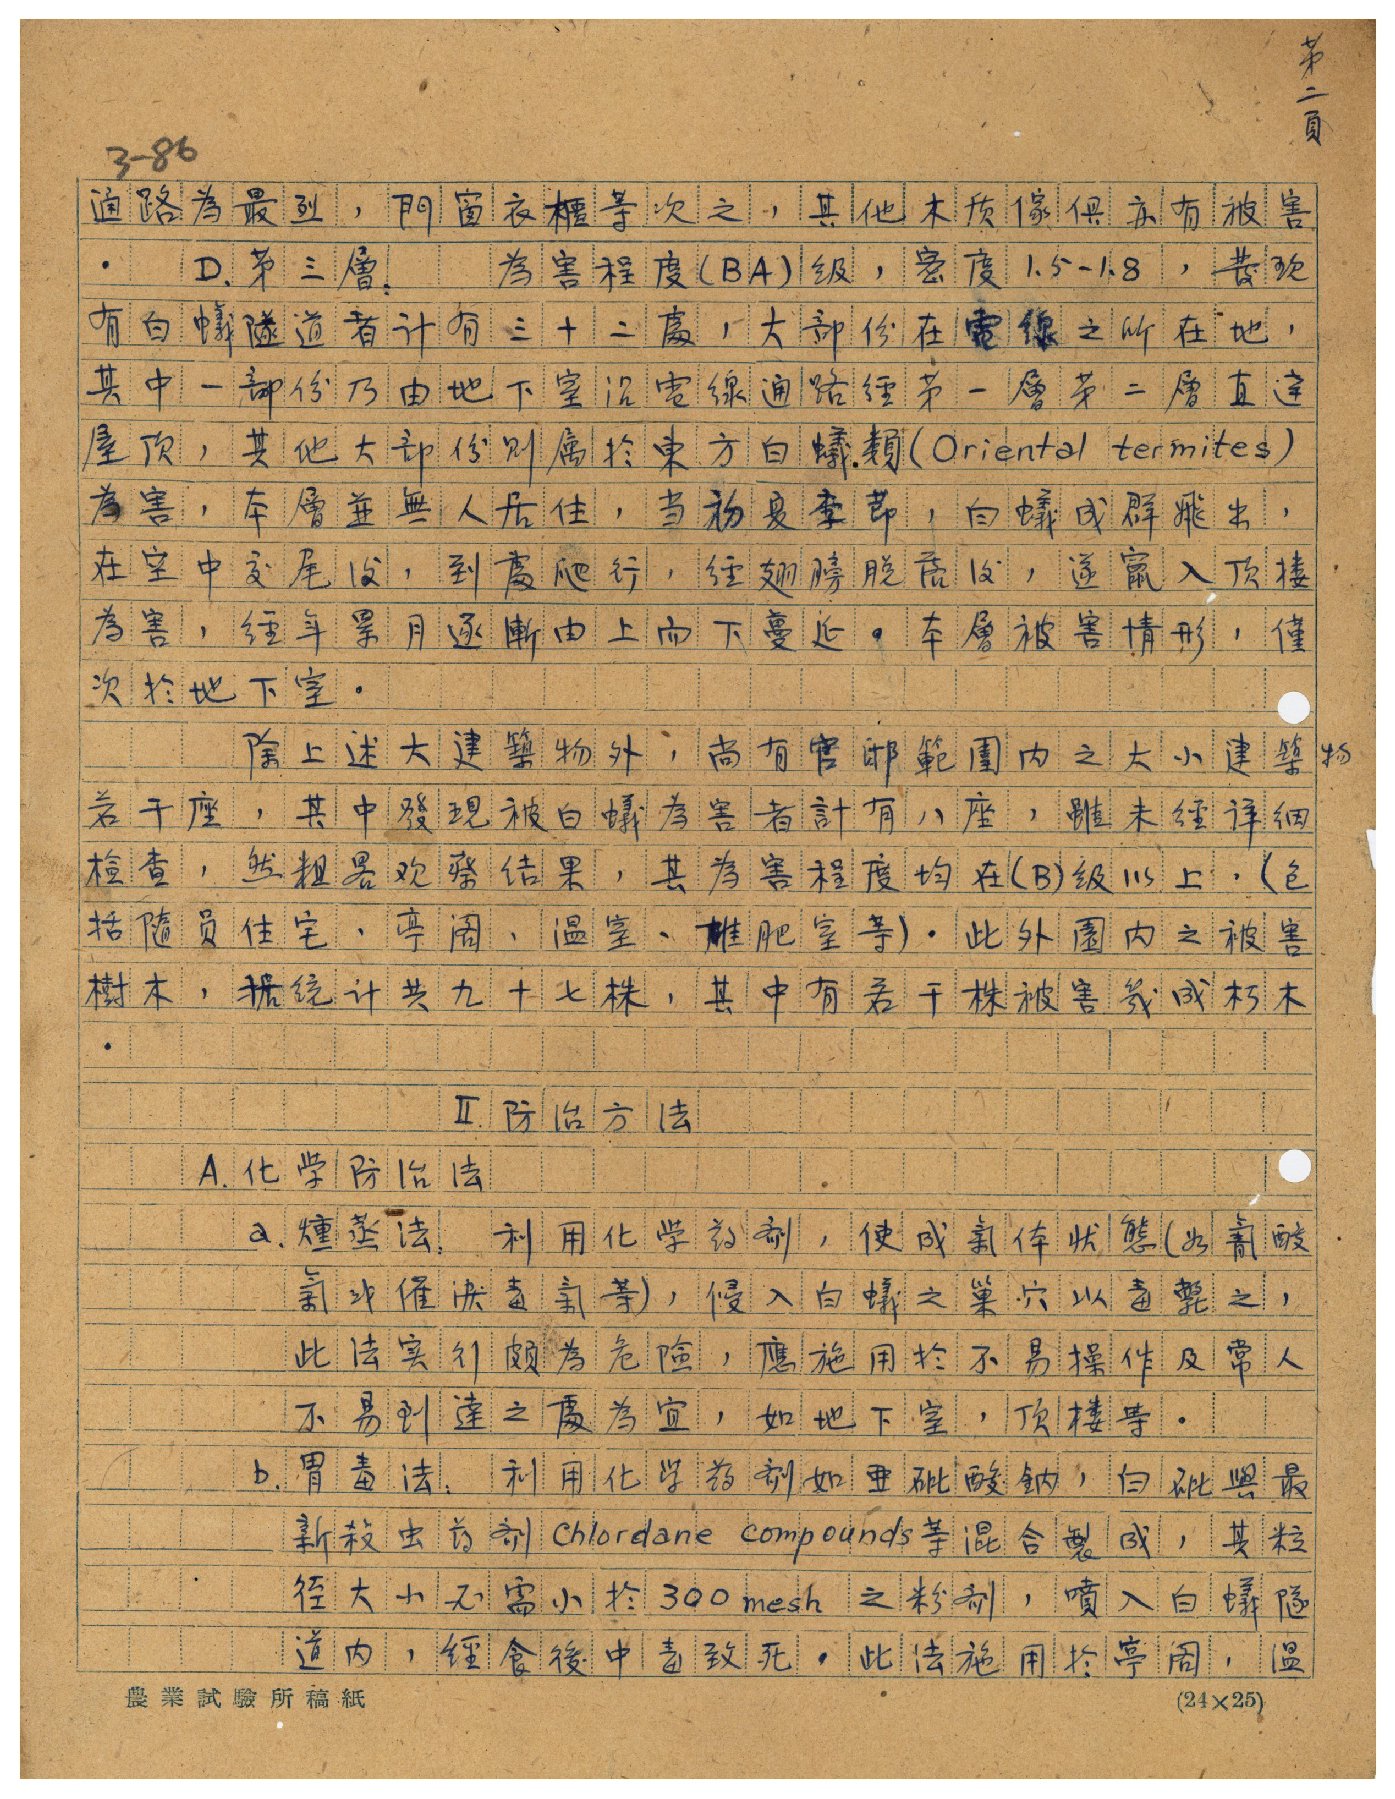 第二頁
3-86
通路為最烈，門窗衣櫃等次之，其他木质傢俱亦有被害
。　D. 第三層：　為害程度(BA)級，密度1.5-1.8，發现
有白蟻隧道者计有三十二處，大部份在電線之所在地，
其中一部份乃由地下室沿電線通路經第一層第二層直達
屋顶，其他大部份则属於東方白蟻類(Oriental termites)
為害，本層並無人居住，当初夏季節，白蟻成群飛出，
在空中交尾後，到處爬行，經翅膀脱落後，遂竄入顶楼
為害，經年累月逐漸由上而下蔓延。本層被害情形，僅
次於地下室。
除上述大建築物外，尚有官邸範圍内之大小建築物
若干座，其中發現被白蟻為害者計有八座，雖未經详細
檢查，然粗畧观察结果，其為害程度均在(B)級以上，(包
括隨員住宅、亭阁、温室、堆肥室等)。此外園内之被害
樹木，据统计共九十七株，其中有若干株被害幾成朽木
。
II. 防治方法
A. 化学防治法
a. 燻蒸法：利用化学药剂，使成氣体狀態(如氰酸
氣或催淚毒氣等)，侵入白蟻之巢穴以毒斃之，
此法实行頗為危險，應施用於不易操作及常人
不易到達之處為宜，如地下室，顶楼等。
b. 胃毒法：利用化学药剂如亜砒酸鈉，白砒與最
新殺虫药剂Chlordane compounds等混合製成，其粒
径大小必需小於300 mesh 之粉剂，噴入白蟻隧
道内，經食後中毒致死。此法施用於亭阁，温
農業試驗所稿紙
(24×25)